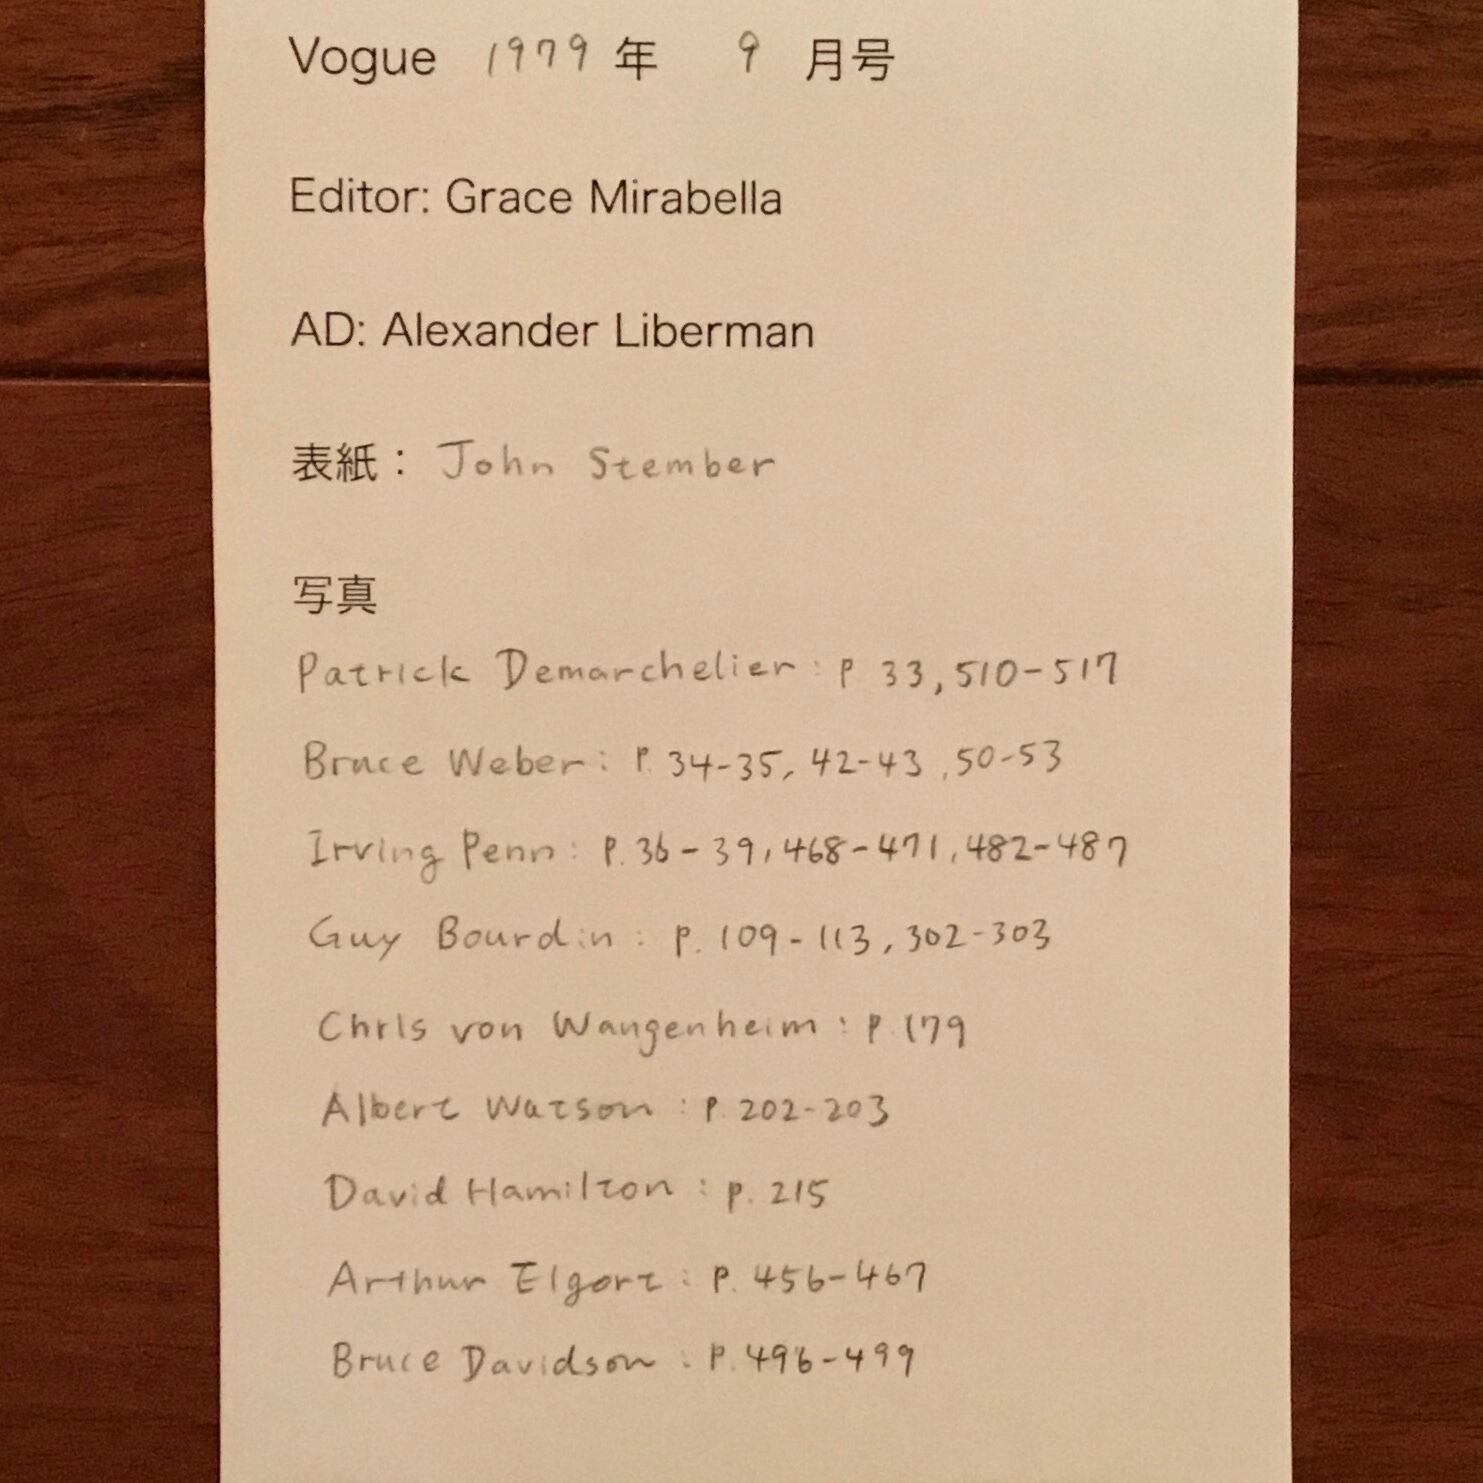 Vogue 1979 年 9 月号
Editor: Grace Mirabella
AD: Alexander Liberman
表紙： John Stember
写真
Patrick Demarchelier : P 33, 510-517
Bruce Weber : P. 34-35, 42-43, 50-53
Irving Penn : P. 36-39, 468-471, 482-487
Guy Bourdin : P. 109-113, 302-303
Chris von Wangenheim : P. 179
Albert Watson : P. 202-203
David Hamilton : P. 215
Arthur Elgort : P. 456-467
Bruce Davidson : P. 496-499